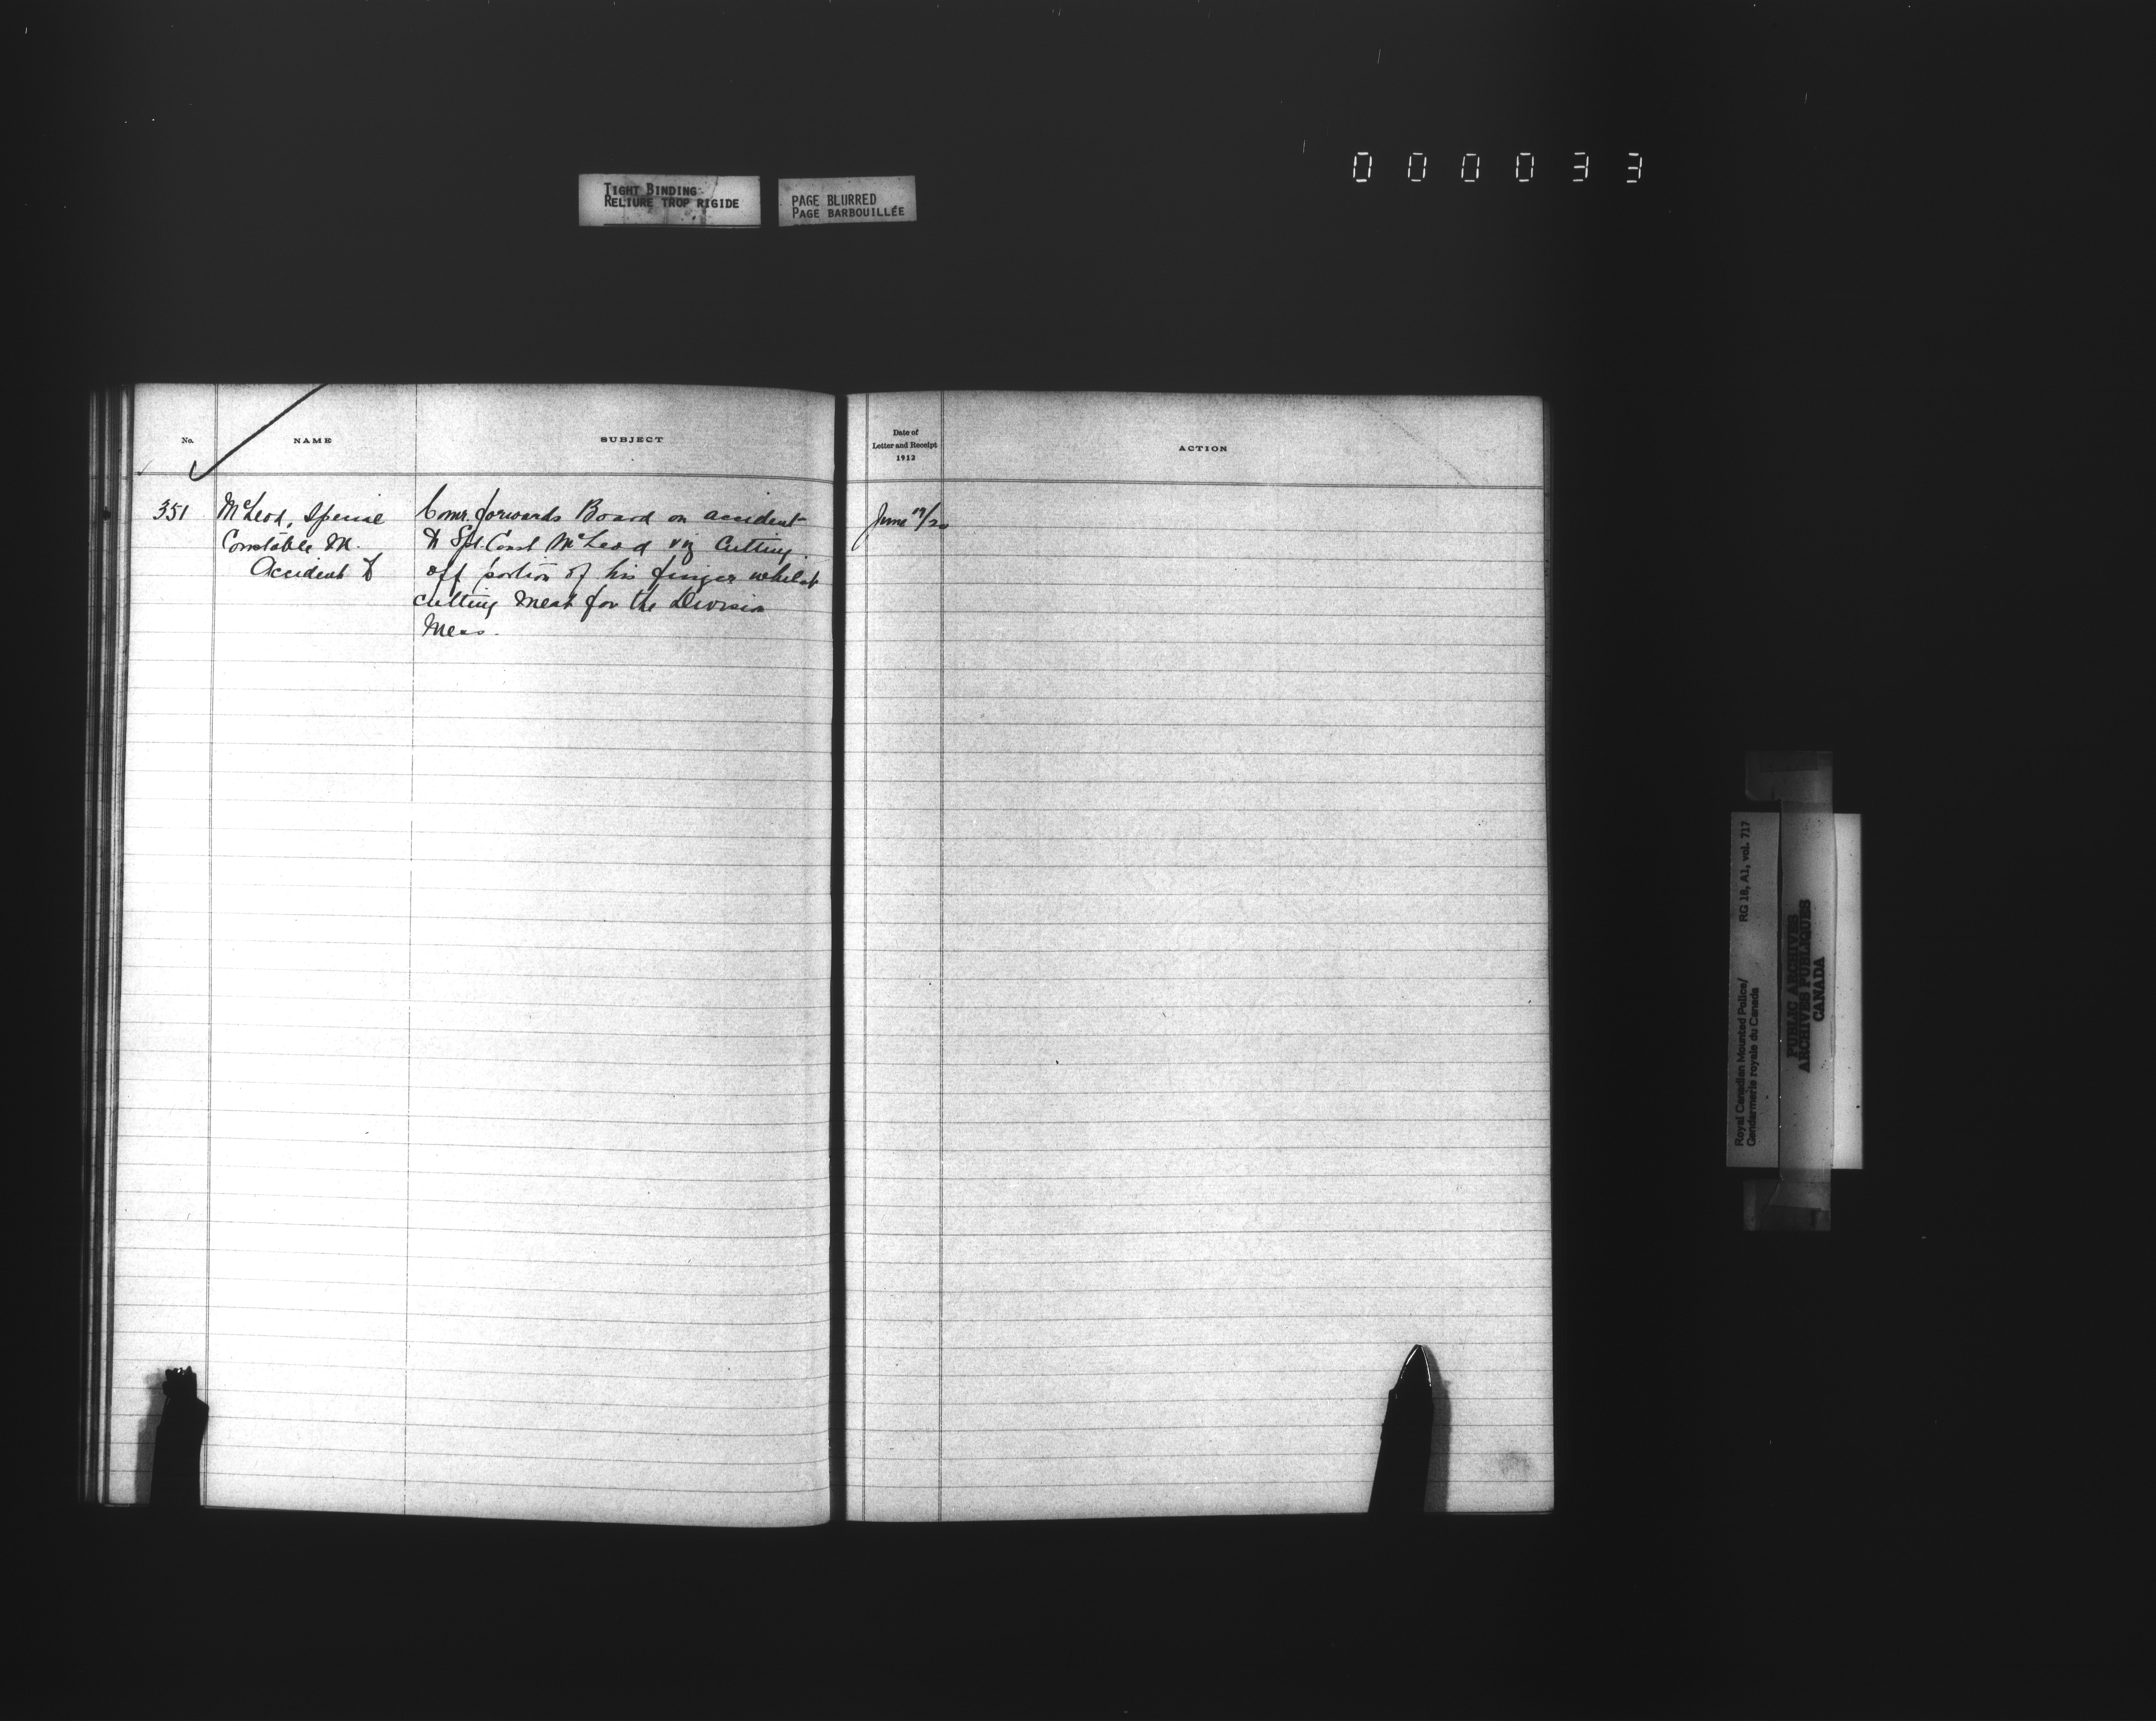 000033
TIGHT BINDING
RELIURE TROP RIGIDE
PAGE BLURRED
PAGE BARBOUILLÉE
No.
NAME
SUBJECT
351
McLeod, Special
Constable M.
Accident to
Comr. forwards Board on accident
to Spl. Const McLeod viz cutting
off portion of his finger whilst
cutting meat for the Division
Mess.
Date of
Letter and Receipt
1912
ACTION
June 19/20
Royal Canadian Mounted Police/ RG 18, A1, vol. 717
Gendarmerie royale du Canada
PUBLIC ARCHIVES
ARCHIVES PUBLIQUES
CANADA